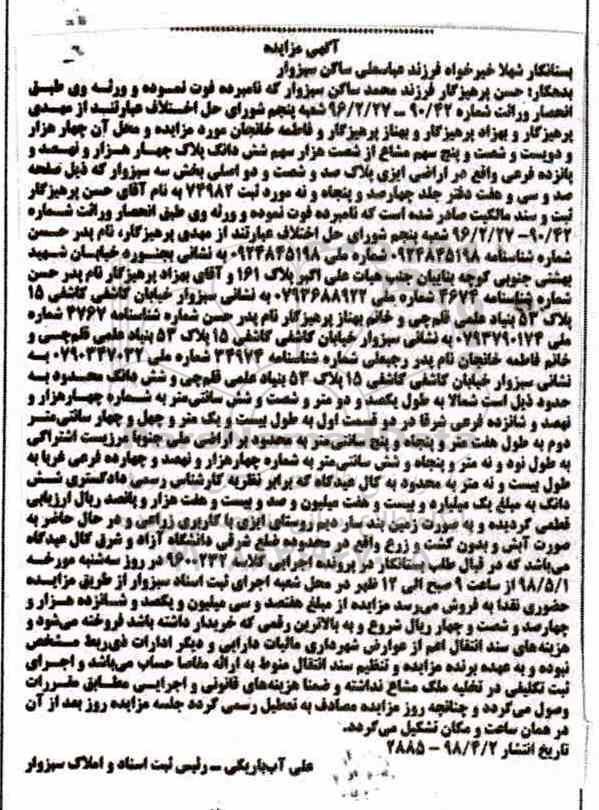 آگهی مزایده
بستانکار شهلا خیرخواه فرزند عباسعلی ساکن سبزوار
بدهکار: حسن پرهیزگار فرزند محمد ساکن سبزوار که نامبرده فوت نموده و ورثه وی طبق
انحصار وراثت شماره ۹۰/۴۲ – ۹۶/۲/۲۷ شعبه پنجم شورای حل اختلاف عبارتند از مهدی
پرهیزگار و بهزاد پرهیزگار و بهناز پرهیزگار و فاطمه خانجان مورد مزایده و محل آن چهار هزار
و دویست و شصت و پنج سهم مشاع از شصت هزار سهم شش دانگ پلاک چهار هزار و نهصد و
پانزده فرعی واقع در اراضی ایزی پلاک صد و شصت و دو اصلی بخش سه سبزوار که ذیل صفحه
صد و سی و هفت دفتر جلد چهارصد و پنجاه و نه مورد ثبت ۷۴۹۸۲ به نام آقای حسن پرهیزگار
ثبت و سند مالکیت صادر شده است که نامبرده فوت نموده و ورثه وی طبق انحصار وراثت شماره
۹۰/۴۲– ۹۶/۲/۲۷ شعبه پنجم شورای حل اختلاف عبارتند از مهدی پرهیزگار، نام پدر حسن
شماره شناسنامه ۰۹۲۴۸۴۵۱۹۸ شماره ملی ۰۹۲۴۸۴۵۱۹۸ به نشانی بجنورد خیابان شهید
بهشتی جنوبی کوچه بناییان جنب هیات علی اکبر پلاک ۱۶۱ و آقای بهزاد پرهیزگار نام پدر حسن
شماره شناسنامه ۳۶۷۴ شماره ملی ۰۷۹۳۶۸۸۹۲۲ به نشانی سبزوار خیابان کاشفی کاشفی ۱۵
پلاک ۵۳ بنیاد علمی قلم‌چی و خانم بهناز پرهیزگار نام پدر حسن شماره شناسنامه ۴۷۶۷ شماره
ملی ۰۷۹۳۷۹۰۱۷۴ به نشانی سبزوار خیابان کاشفی کاشفی ۱۵ پلاک ۵۳ بنیاد علمی قلم‌چی و
خانم فاطمه خانجان نام پدر رجبعلی شماره شناسنامه ۳۴۹۷۴ شماره ملی ۰۷۹۰۳۴۷۰۳۲ به
نشانی سبزوار خیابان کاشفی کاشفی ۱۵ پلاک ۵۳ بنیاد علمی قلم‌چی و شش دانگ محدود به
حدود ذیل است شمالا به طول یکصد و دو متر و شصت و شش سانتی‌متر به شماره چهارهزار و
نهصد و شانزده فرعی شرقا در دو قسمت اول به طول بیست و یک متر و چهل و چهار سانتی‌متر
دوم به طول هفت متر و پنجاه و پنج سانتی‌متر به محدود بر اراضی ملی جنوبا مرزیست اشتراکی
به طول نود و نه متر و پنجاه و شش سانتی‌متر به شماره چهارهزار و نهصد و چهارده فرعی غربا به
طول بیست و نه متر به محدود به کال عیدگاه که برابر نظریه کارشناس رسمی دادگستری شش
دانگ به مبلغ یک میلیارد و بیست و هفت میلیون و صد و بیست و هفت هزار و پانصد ریال ارزیابی
قطعی گردیده و به صورت زمین بند سار دیم روستای ایزی با کاربری زراعی و در حال حاضر به
صورت آیش و بدون کشت و زرع واقع در محدوده ضلع شرقی دانشگاه آزاد و شرق کال عیدگاه
می‌باشد که در قبال طلب بستانکار در پرونده اجرایی کلاسه ۹۶۰۰۲۳۲ در روز سه‌شنبه مورخه
۹۸/۵/۱ از ساعت ۹ صبح الی ۱۲ ظهر در محل شعبه اجرای ثبت اسناد سبزوار از طریق مزایده
حضوری نقدا به فروش می‌رسد مزایده از مبلغ هفتصد و سی میلیون و یکصد و شانزده هزار و
چهارصد و شصت و چهار ریال شروع و به بالاترین رقمی که خریدار داشته باشد فروخته می‌شود و
هزینه‌های سند انتقال اعم از عوارض شهرداری مالیات دارایی و دیگر ادارات ذی‌ربط مشخص
نبوده و به عهده برنده مزایده و تنظیم سند انتقال منوط به ارائه مفاصا حساب می‌باشد و اجرای
ثبت تکلیفی در تخلیه ملک مشاع نداشته و ضمنا هزینه‌های قانونی و اجرایی مطابق مقررات
وصول می‌گردد و چنانچه روز مزایده مصادف به تعطیل رسمی گردد جلسه مزایده روز بعد از آن
در همان ساعت و مکان تشکیل می‌گردد.
تاریخ انتشار ۹۸/۴/۲ – ۲۸۸۵
علی آب‌باریکی – رئیس ثبت اسناد و املاک سبزوار